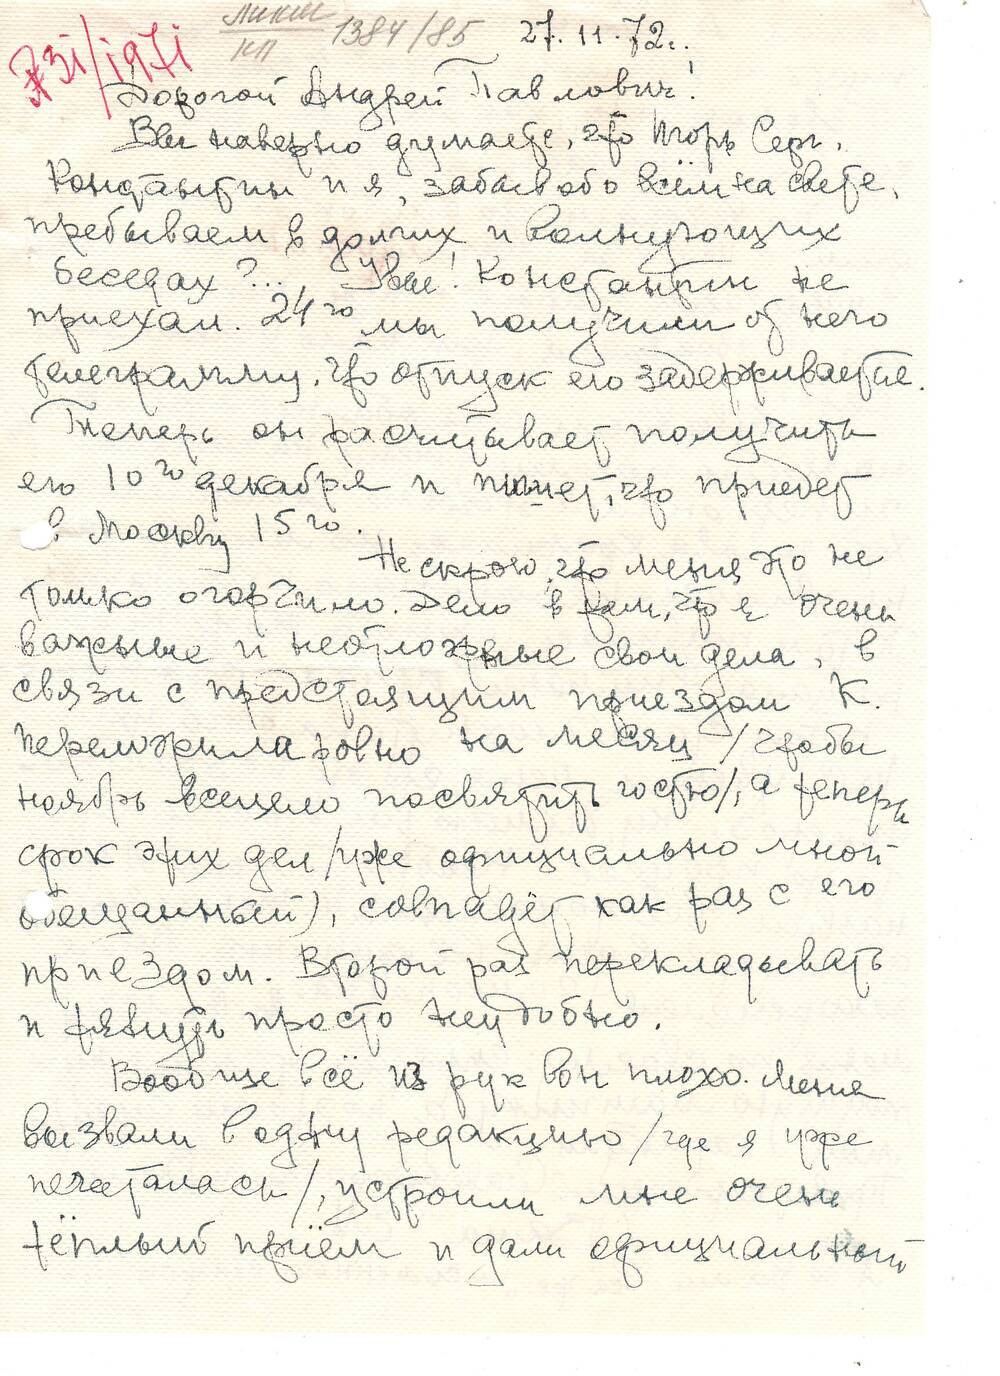 ЛИКМ
КП 1384/85
27.11.72г.
№31/1971
Дорогой Андрей Павлович!
Вы наверно думаете, что Игорь Серг.
Константин и я, забыв обо всём на свете,
пребываем в долгих и волнующих
беседах?... Увы! Константин не
приехал. 24го мы получили от него
телеграмму, что отпуск его задерживается.
Теперь он расчитывает получить
его 10го декабря и пишет, что приедет
в Москву 15го.
Не скрою, что меня это не
только огорчило. Дело в том, что я очень
важные и неотложные свои дела, в
связи с предстоящим приездом К.
переложила ровно на месяц /чтобы
ноябрь всецело посвятить гостю/, а теперь
срок этих дел /уже официально мной
обещанный), совпадёт как раз с его
приездом. Второй раз перекладывать
и тянуть просто неудобно.
Вообще всё из рук вон плохо. Меня
вызвали в одну редакцию /где я уже
печаталась/, устроили мне очень
тёплый приём и дали официальный